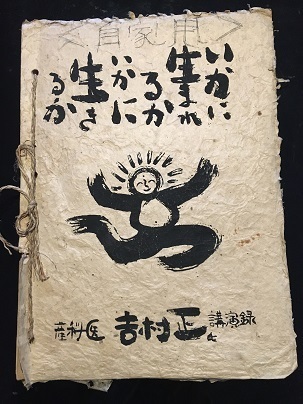 <自家用>
いかに
生まれ
るか
いかに
生き
るか
産科医 吉村正 講演録